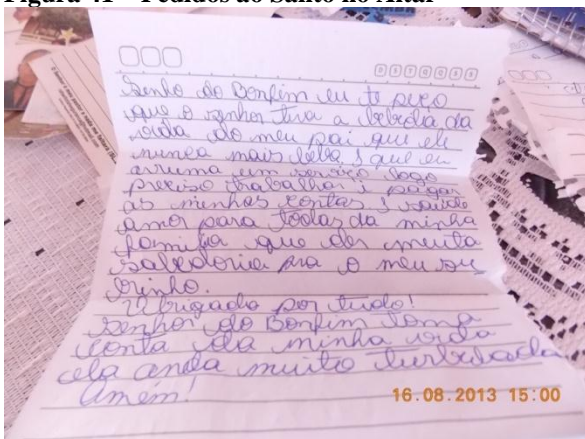 Figura 41 – Pedidos ao Santo no Altar
D S T Q Q S S
Senho do Bonfim eu te peço
que o senhor tira a bebidia da
vida do meu pai que ele
nunca mais beba, e que eu
arruma um serviço logo
preciso trabalhar i pagar
as minhas contas e saúde
amor para todas da minha
familia que der muita
sabedoria pra o meu so
brinho.
Obrigada por tudo!
Senhor do Bonfim toma
conta da minha vida
ela anda muito
Amém!
16.08.2013 15:00